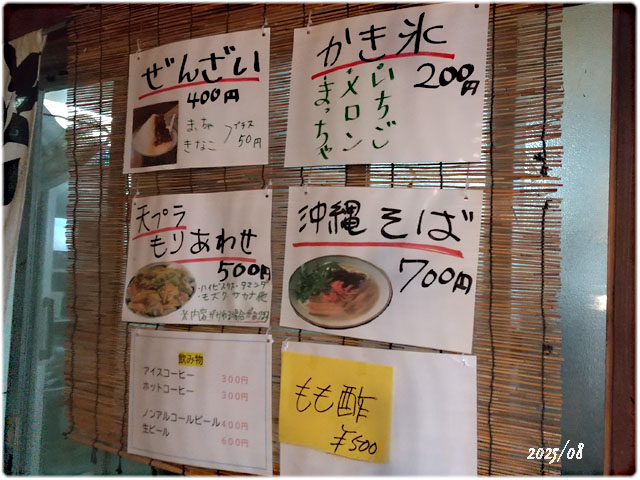 ぜんざい
400円
まっちゃ
きなこ
プラス
50円
かき氷
200円
・いちご
・メロン
・まっちゃ
天プラ
もりあわせ
500円
・ハイビスカス・タマネギ
・モズク・サカナ他
沖縄そば
700円
飲み物
アイスコーヒー 300円
ホットコーヒー 300円
ノンアルコールビール 400円
生ビール 600円
もも酢
¥500
2025/08